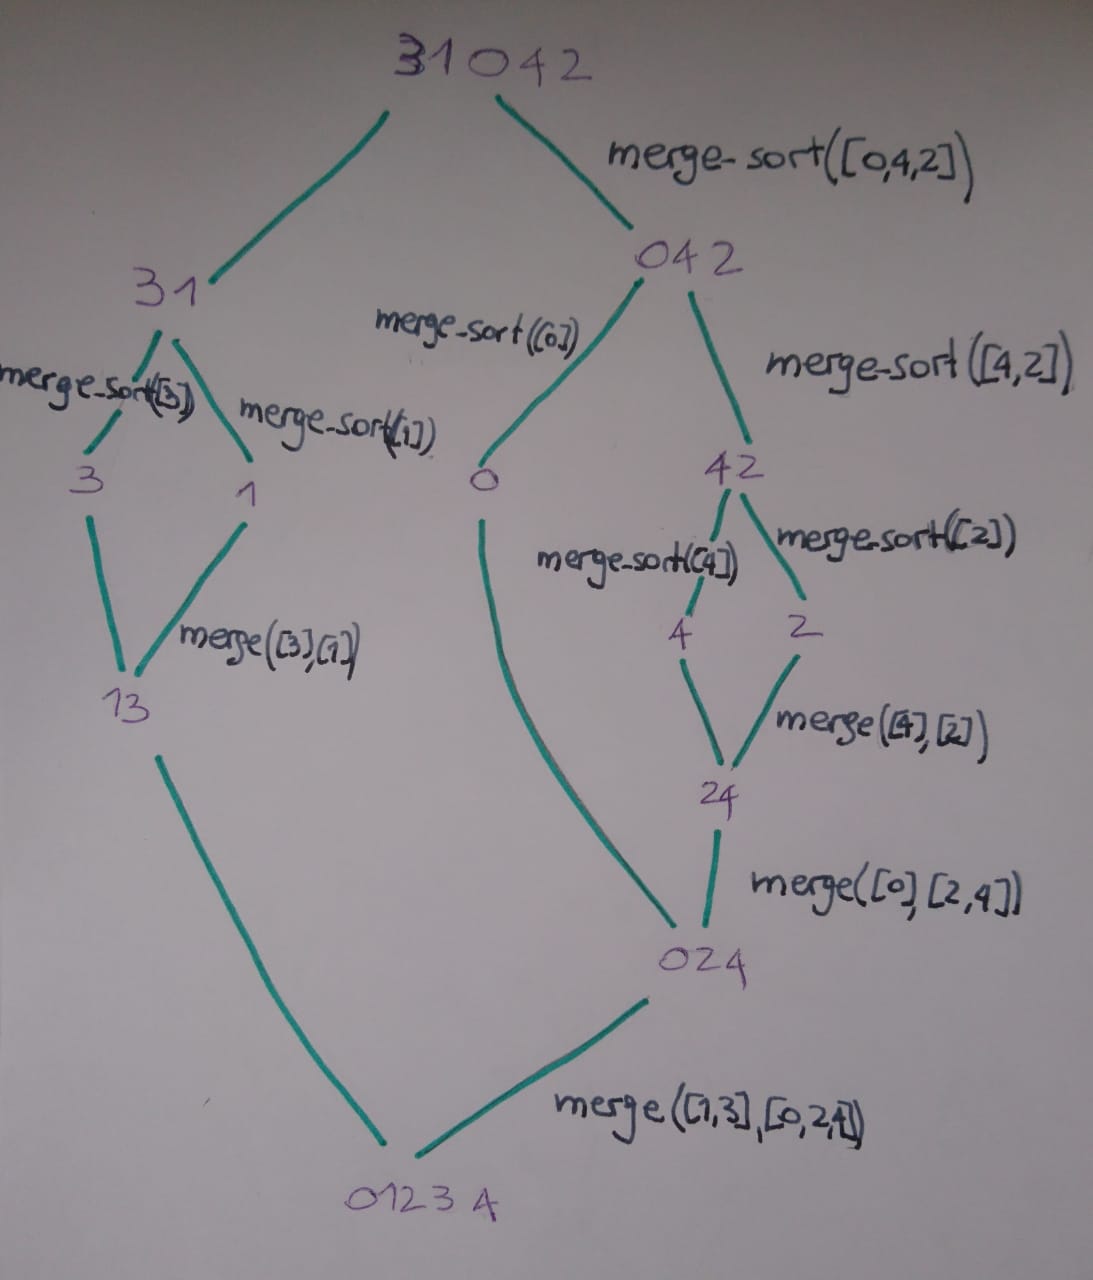 31042
merge-sort([0,4,2])
042
31
merge-sort([0])
merge-sort([4,2])
merge-sort([3])
merge-sort([1])
3
1
0
42
merge-sort([4])
merge-sort([2])
4
2
merge([3],[1])
13
merge([4],[2])
24
merge([0],[2,4])
024
merge([1,3],[0,2,4])
01234